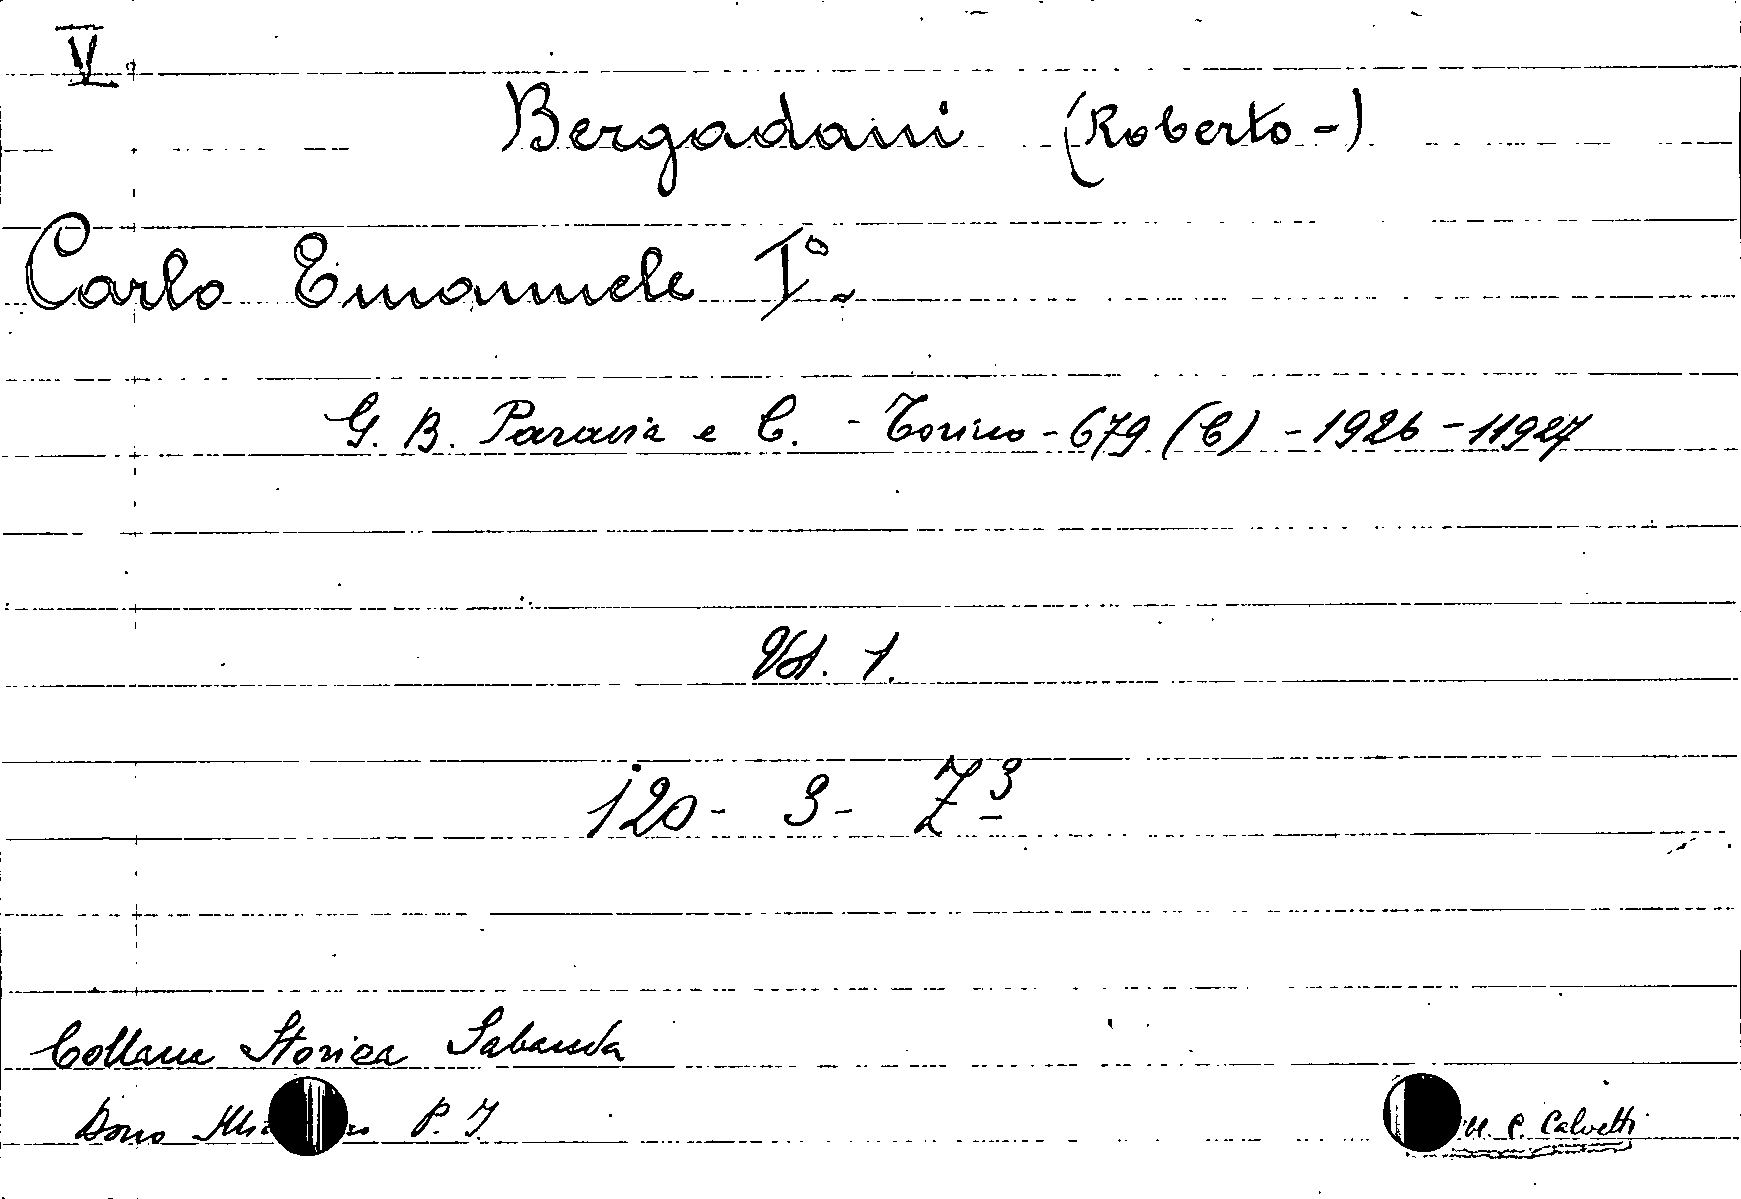 V.
Bergadani (Roberto-)
Carlo Emanuele I°.
G. B. Paravia e C. - Torino - 679 (C) - 1926 - 11927
Vol. 1.
120 - 3 - Z 3
Collana Storica Sabauda
Dono P. I.
P. Calvetti